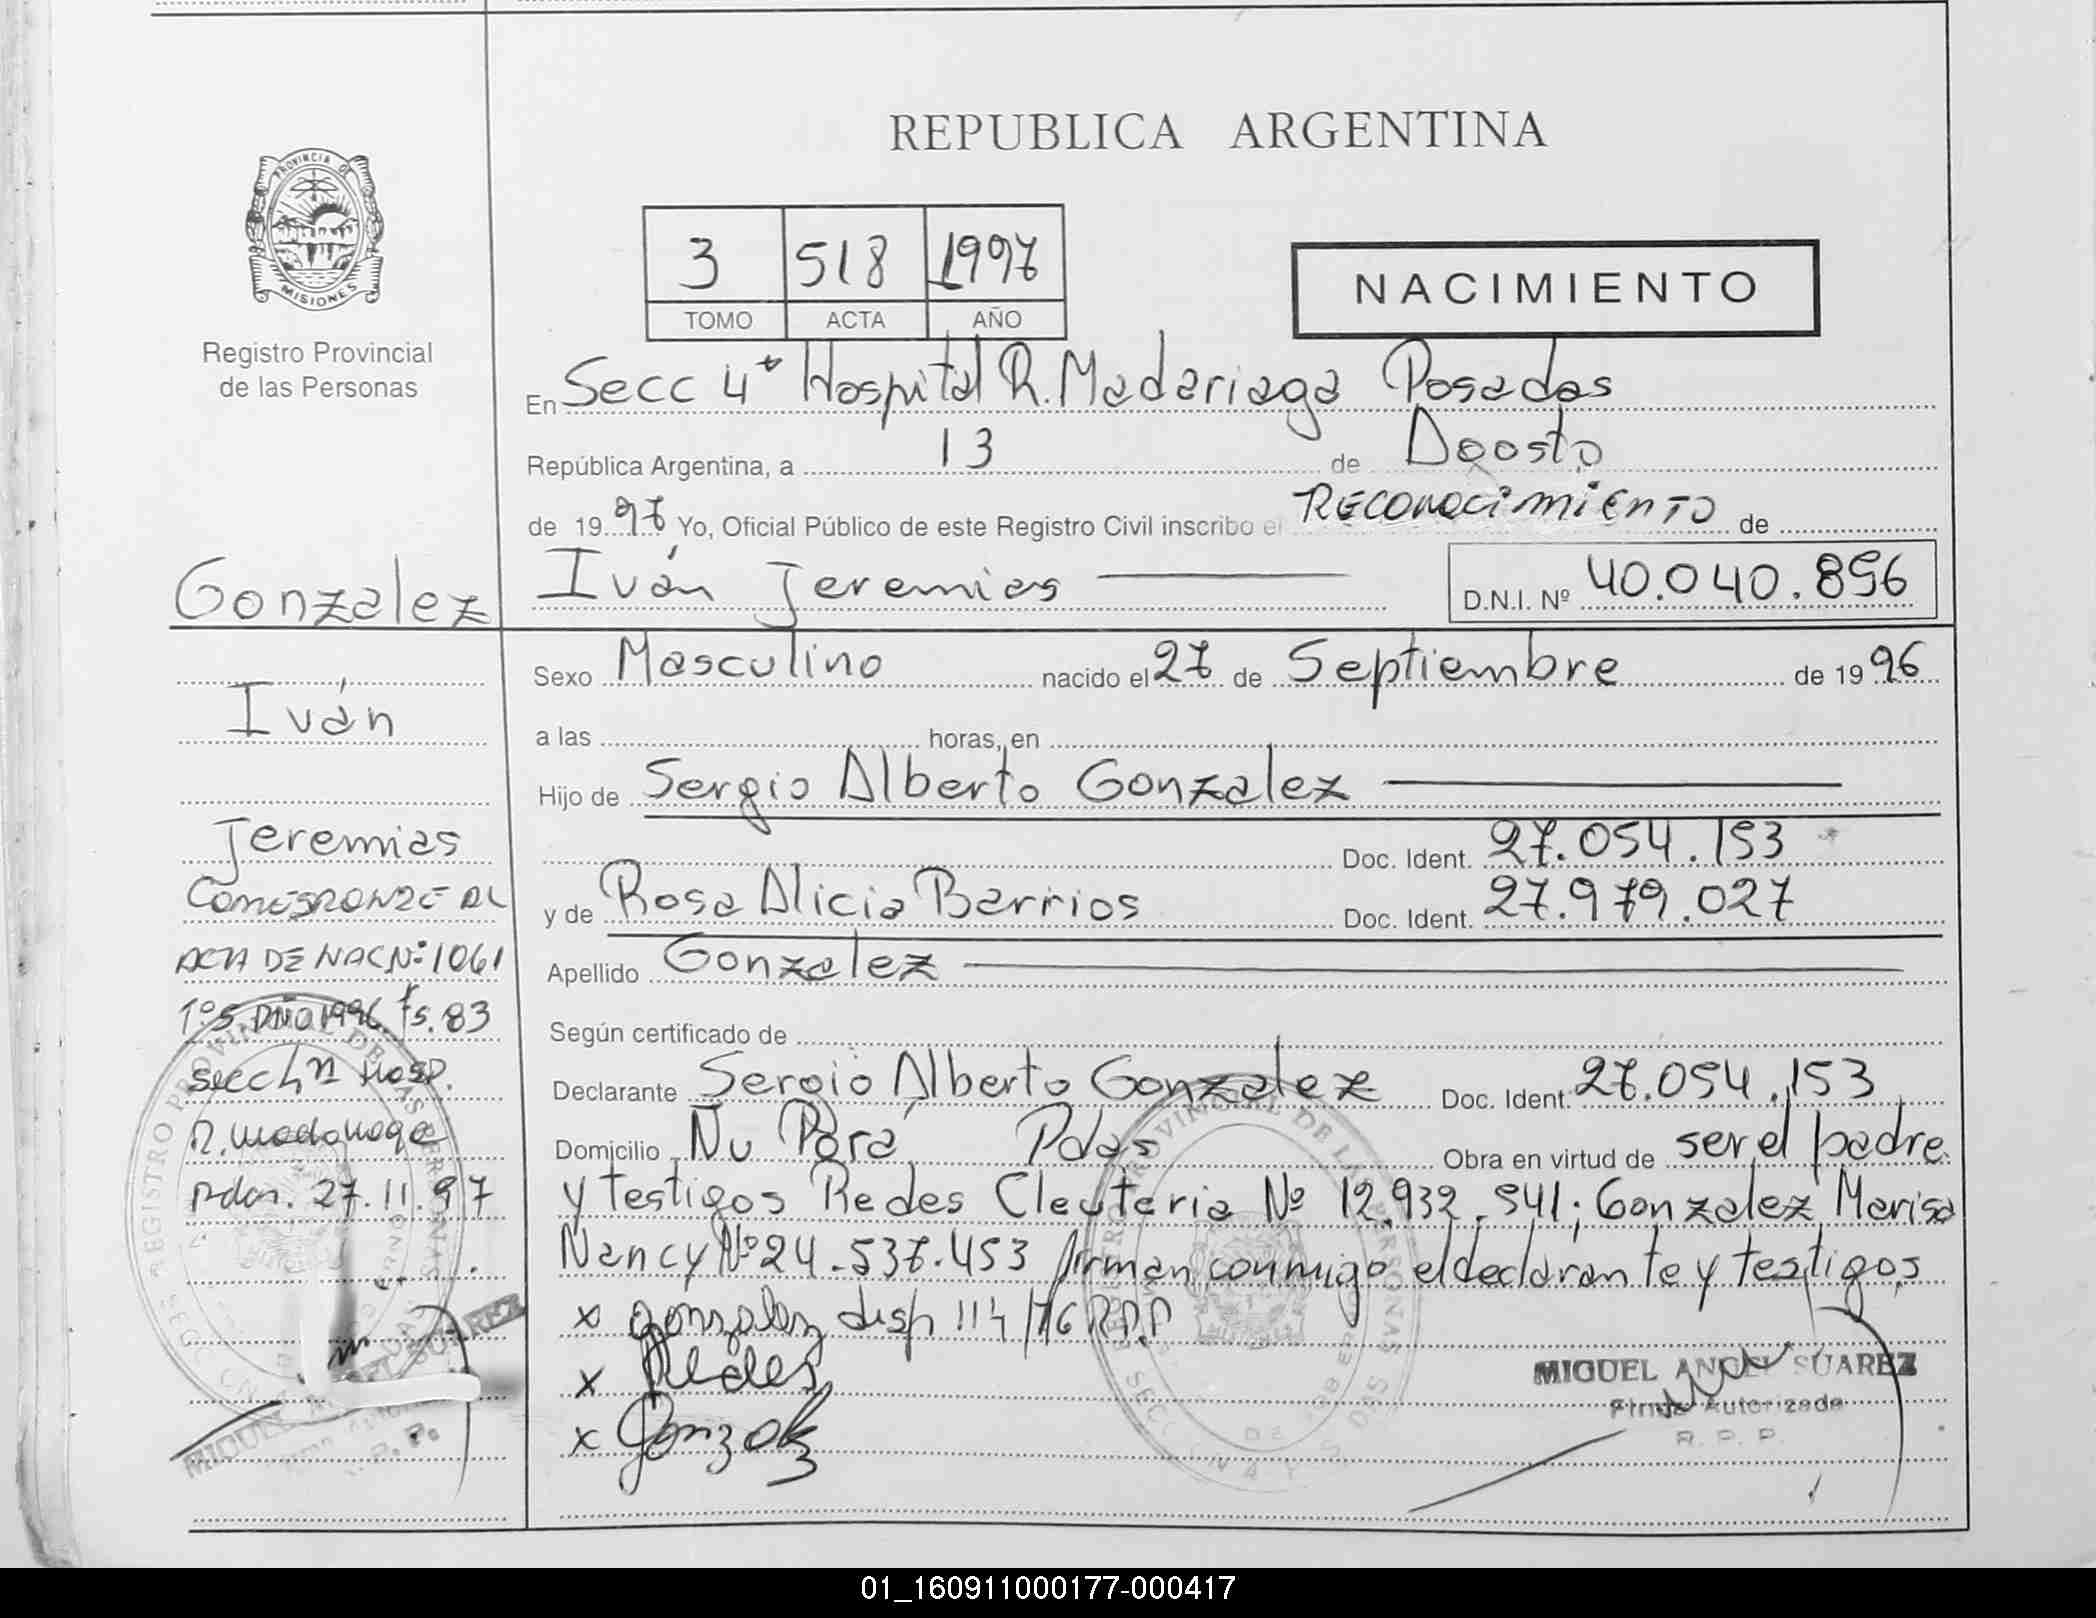 REPUBLICA ARGENTINA
PROVINCIA DE
MISIONES
Registro Provincial
de las Personas
3 518 1997
TOMO ACTA AÑO
NACIMIENTO
En Secc 4ª Hospital R. Madariaga Posadas
República Argentina, a 13 de Agosto
de 1997 Yo, Oficial Público de este Registro Civil inscribo el RECONOCIMIENTO de
Iván Jeremias D.N.I. Nº 40.040.896
Sexo Masculino nacido el 27 de Septiembre de 1996
a las horas, en
Hijo de Sergio Alberto Gonzalez
Doc. Ident. 27.054.153
y de Rosa Alicia Barrios Doc. Ident. 27.979.027
Apellido Gonzalez
Según certificado de
Declarante Sergio Alberto Gonzalez Doc. Ident. 27.054.153
Domicilio Ñu Porá Pdas Obra en virtud de ser el padre
y testigos Redes Cleuteria Nº 12.932.541; Gonzalez Marisa
Nancy Nº 24.537.453 firman conmigo el declarante y testigos
x gonzalez disp 114/76 R.P.P
x Redes
x Gonzalez
MIGUEL ANGEL SUAREZ
Firma Autorizada
R. P. P.
Gonzalez
Iván
Jeremias
CORRESPONDE AL
ACTA DE NAC Nº 1061
Tº 5 AÑO 1996 Fs. 83
secc 4ª Hosp.
R. Madariaga
Pdas. 27.11.97
REGISTRO PROVINCIAL DE LAS PERSONAS
01_160911000177-000417